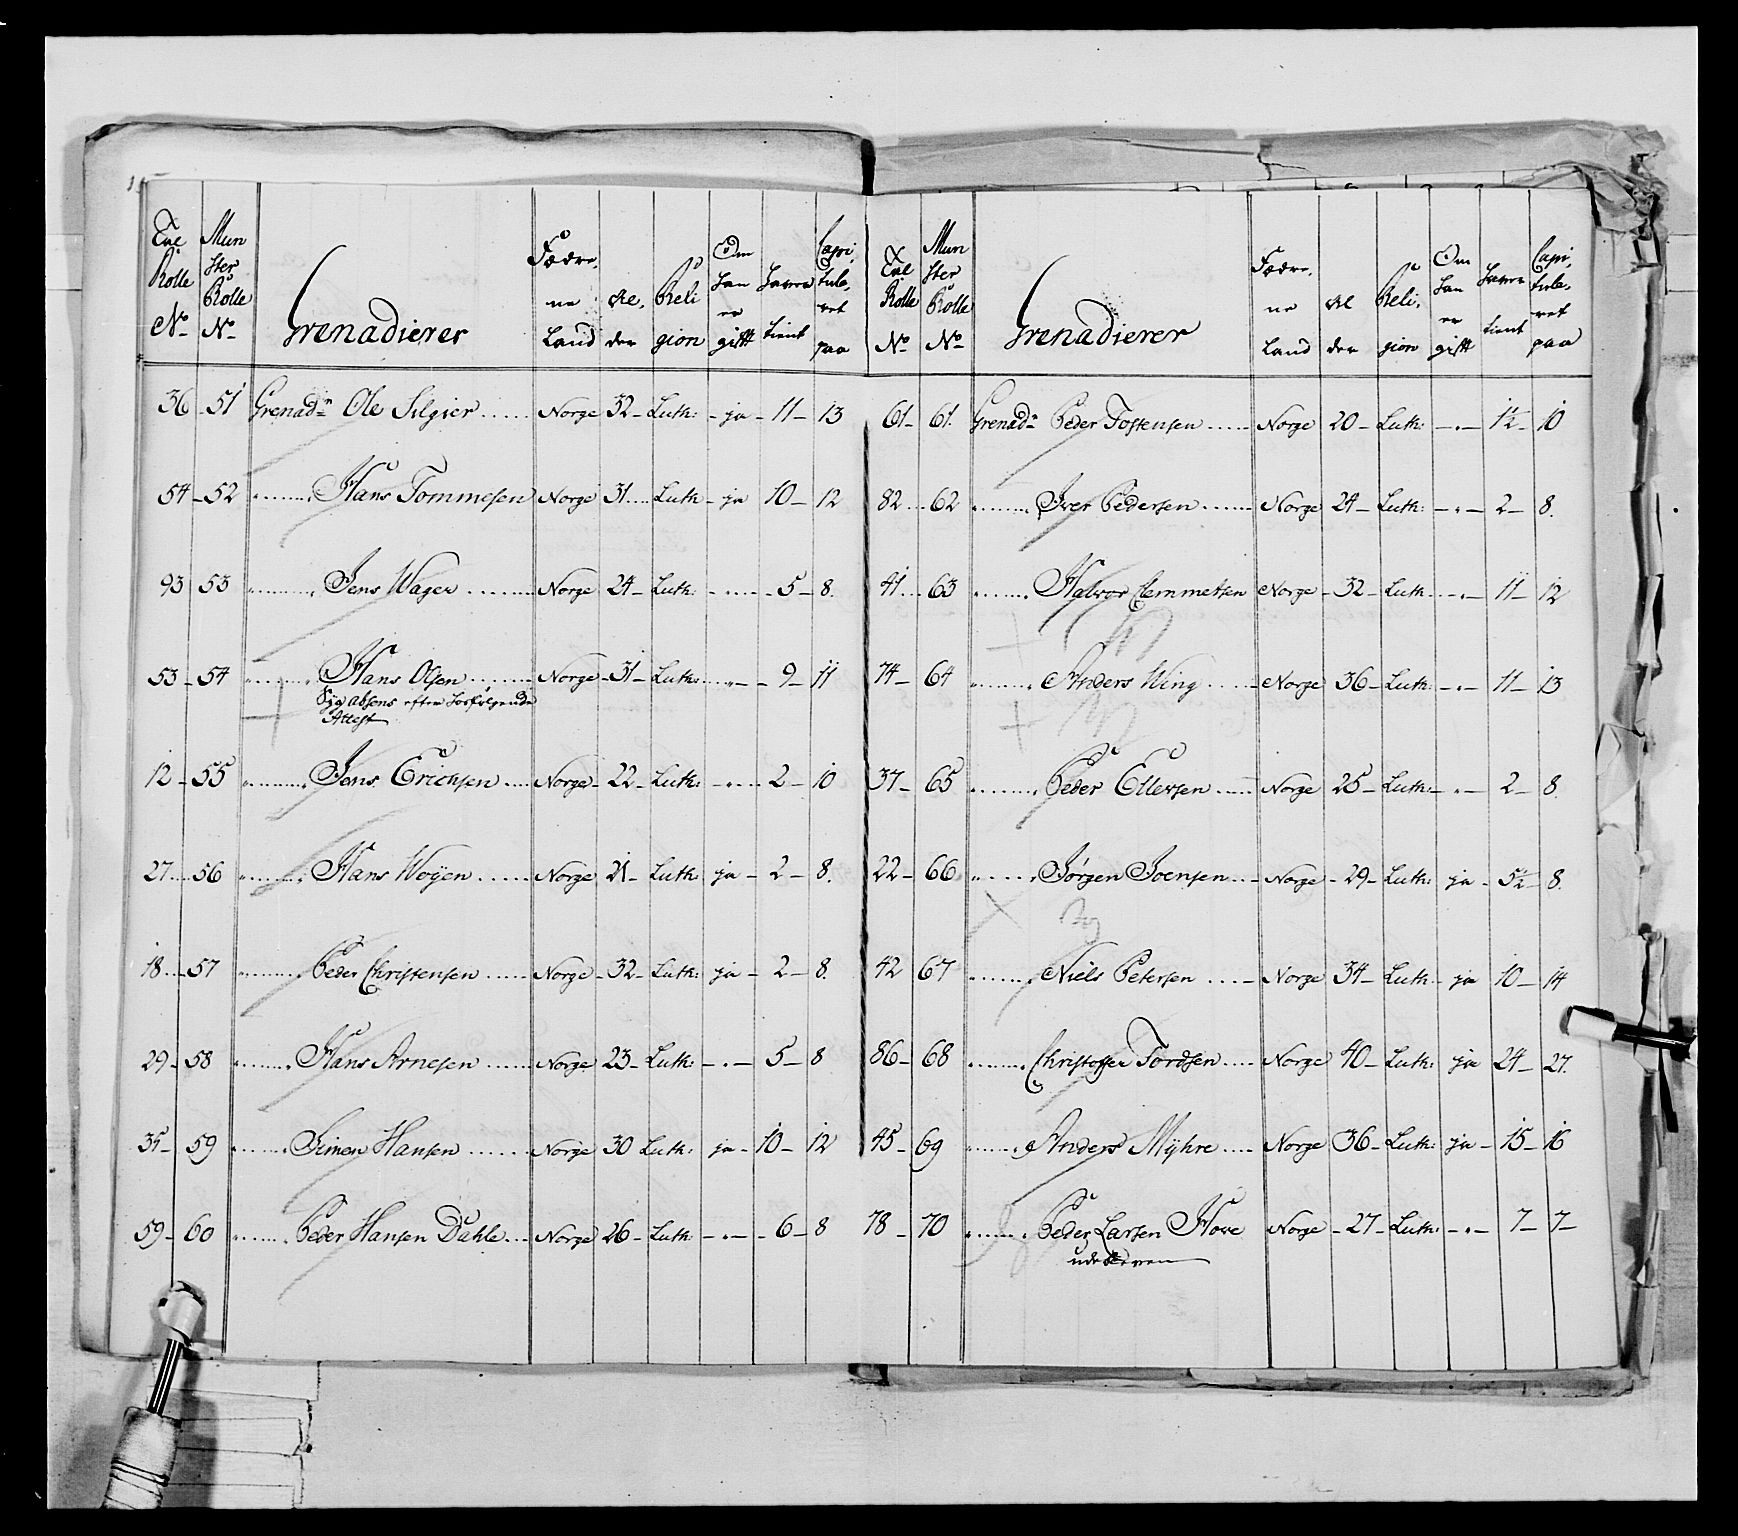 Exl Rolle No | Mun ster Rolle No | Grenadierer | Fædre, ne Land | Al, der | Reli gion | Om han er gifft | haver tient | Capi, tule, ret paa
36 51 Grenadr Ole Silgier Norge 32 Luth: ja 11 13
54 52 Hans Tommesen Norge 31 Luth ja 10 12
93 53 Jens Wager Norge 24 Luth: 5 8.
53 54 Hans Olsen Norge 31 Luth: 9 11
Syg absens efter hosfølgende
Attest
12 55 Jens Erichsen Norge 22 Luth: 2 10
27 56 Hans Woÿen Norge 21 Luth ja 2 8.
18 57 Peder Christensen Norge 32 Luth: ja 2 8.
29 58 Hans Arnesen Norge 23 Luth: 5 8
35 59 Simen Hansen Norge 30 Luth: ja 10 12
59 60 Peder Hansen Dahle Norge 26 Luth: 6 8
Exl Rolle No | Mun ster Rolle No | Grenadierer | Fædre, ne Land | Al der | Reli, gion | Om han er gifft | haver tient | Capi, tule, ret paa
61 61. Grenadr Peder Tostensen Norge 20 Luth: 1½ 10
82 62 Iver Pedersen Norge 24 Luth: 2 8.
41 63 Halvor Clemmetsen Norge 32 Luth: 11 12
74 64 Anders Wing Norge 36 Luth: 11 13
37 65 Peder Ellersen Norge 25 Luth: 2 8.
22 66 Jørgen Joensen Norge 29 Luth: ja 5½ 8.
42 67 Niels Petersen Norge 34 Luth: ja 10 14
86 68 Christoffer Tordsen Norge 40 Luth: ja 24 27.
45 69 Anders Mÿhre Norge 36 Luth: ja 15 16
78 70 Peder Larsen Hove Norge 27 Luth: 7 7